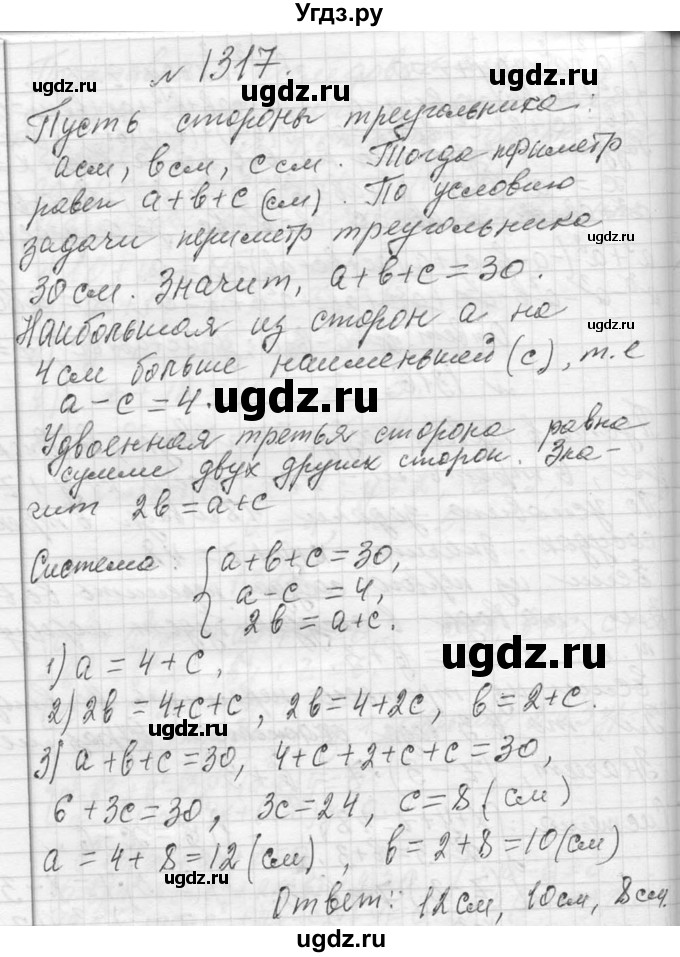 Угдз.ру
№ 1317.
ugdz.ru
ugdz.ru
ugdz.ru
Пусть стороны треугольника:
a см, b см, c см. Тогда периметр
равен a+b+c (см). По условию
ugdz.ru
задачи периметр треугольника
30 см. Значит, a+b+c=30.
Наибольшая из сторон a на
ugdz.ru
4 см больше наименьшей (c), т.е
a-c=4.
ugdz.ru
Удвоенная третья сторона равна
сумме двух других сторон. Зна-
чит 2b=a+c
Система: { a+b+c=30,
a-c =4,
2b=a+c.
ugdz.ru
1) a=4+c,
2) 2b=4+c+c, 2b=4+2c, b=2+c.
ugdz.ru
3) a+b+c=30, 4+c+2+c+c=30,
6+3c=30, 3c=24, c=8 (см)
a=4+8=12 (см), b=2+8=10 (см)
ugdz.ru
Ответ: 12 см, 10 см, 8 см.
ugdz.ru